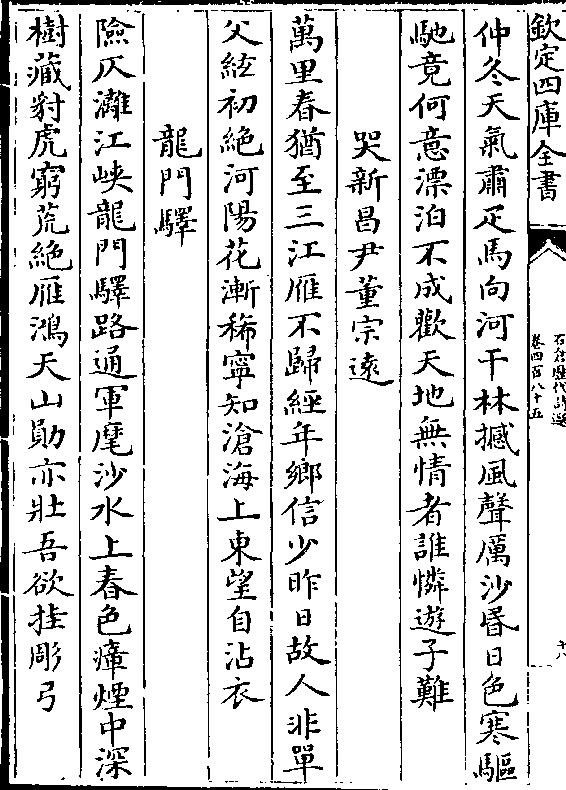 欽定四庫全書
石倉歷代詩選
卷四百八十五
十八
仲冬天氣肅疋馬向河干林撼風聲厲沙昏日色寒驅
馳竟何意漂泊不成歡天地無情者誰憐遊子難
哭新昌尹董宗遠
萬里春猶至三江雁不歸經年鄉信少昨日故人非單
父絃初絶河陽花漸稀寧知滄海上東望自沾衣
龍門驛
險仄灘江峽龍門驛路通軍麾沙水上春色瘴煙中深
樹藏豺虎窮荒絶雁鴻天山勛亦壯吾欲挂彫弓